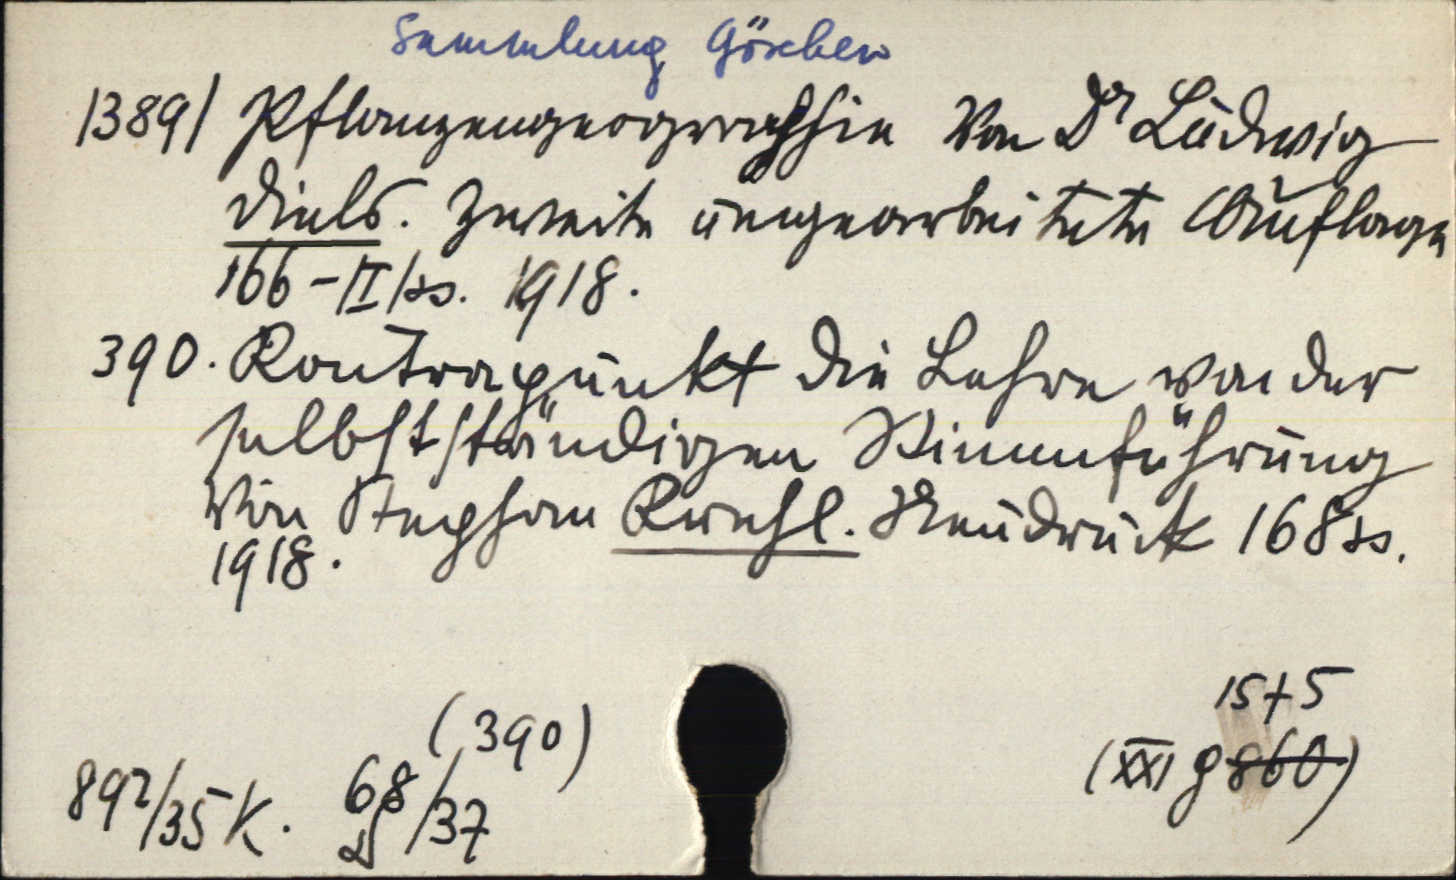 Sammlung Göschen
/389/ Pflanzengeographie Von Dr Ludwig
Diels. Zweite umgearbeitete Auflage
166 - II/ss. 1918.
390. Kontrapunkt die Lehre von der
selbstständigen Stimmführung
Von Stephan Krehl. Neudruck 168 ss.
1918.
(390)
892/35 K. 68/37
15+5
(XXI g 860)